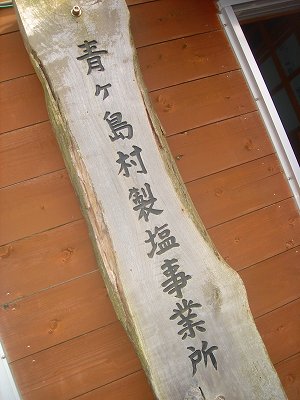 青ヶ島村製塩事業所